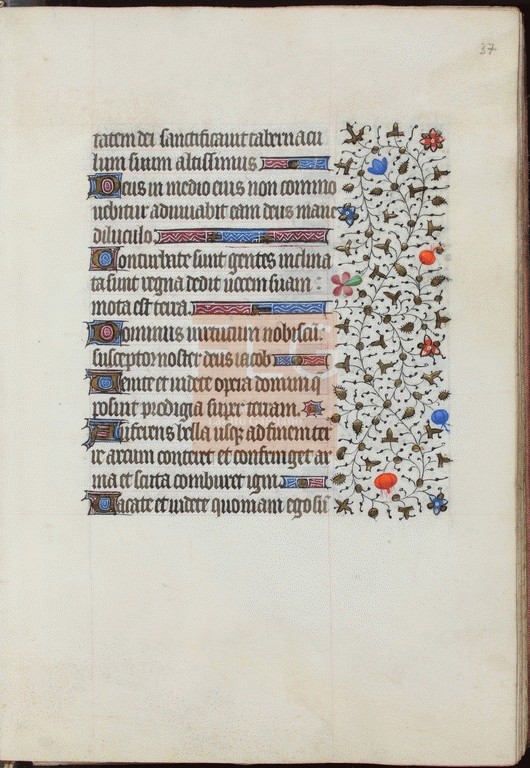 37
tatem dei sanctificauit tabernacu
lum suum altissimus
Deus in medio eius non commo
uebitur adiuuabit eam deus mane
diluculo
Conturbate sunt gentes inclina
ta sunt regna dedit uocem suam :
mota est terra
Dominus uirtutum nobiscū.
susceptor noster deus iacob
Uenite et uidete opera domini q̄
posuit prodigia super terram.
Auferens bella usqȝ ad finem ter
re arcum conteret et confringet ar
ma et scuta comburet igni
Uacate et uidete quoniam ego sū